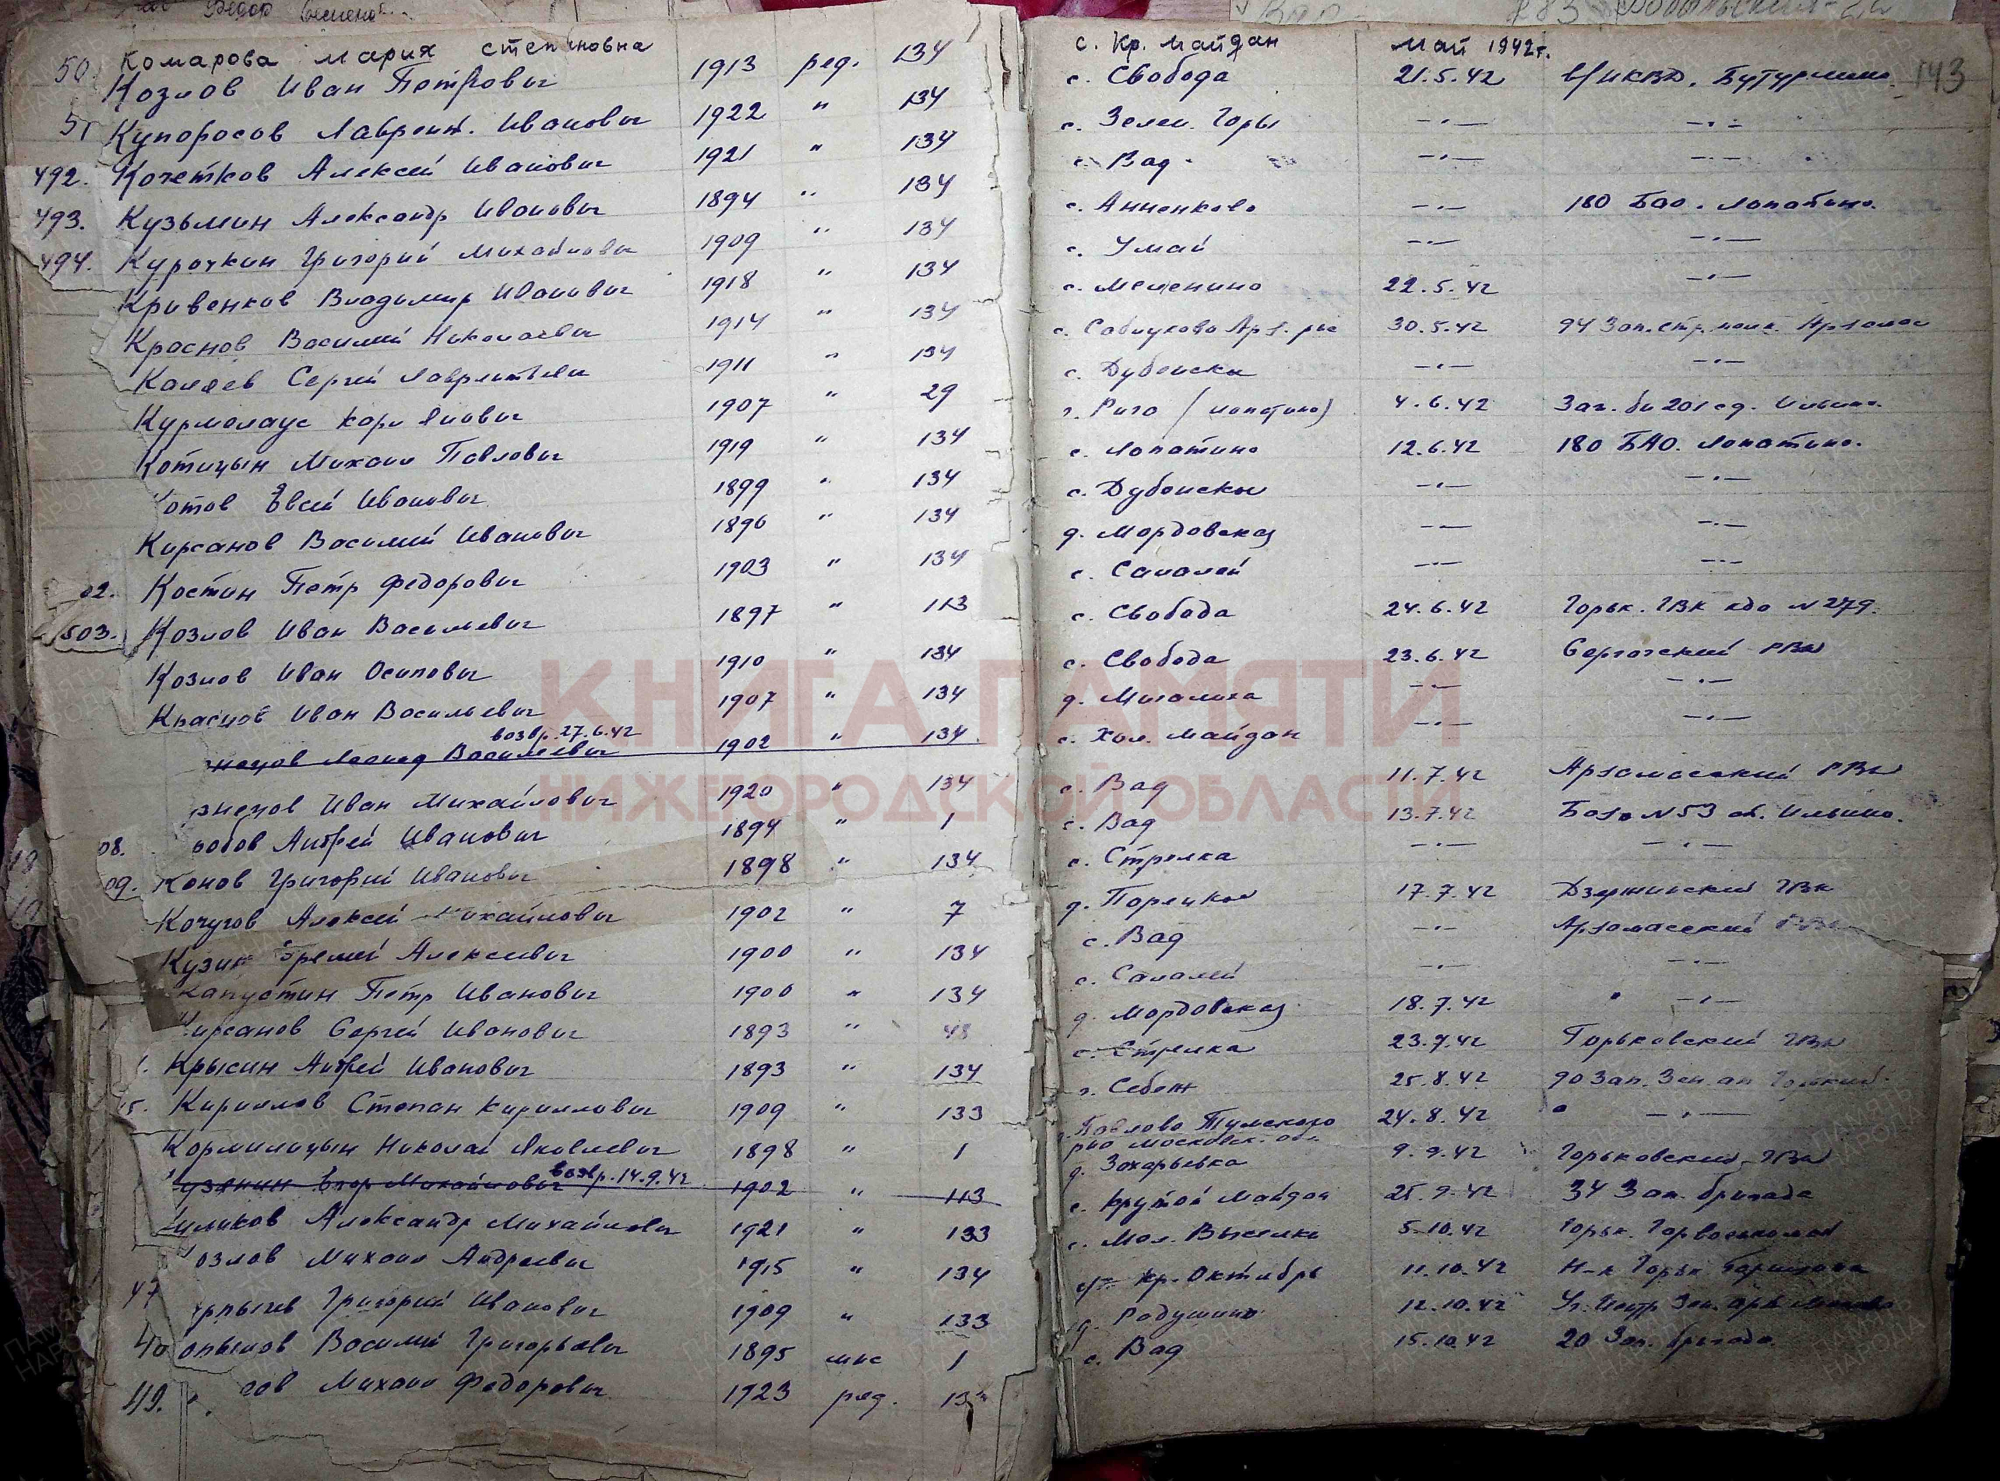 Комарова Мария Степановна с. Кр. Майдан Май 1942г.
50 Козлов Иван Петрович 1913 ряд. 134 с. Свобода 21.5.42 в/ НКВД. Бутурлино 143
51 Купоросов Лаврент. Иванович 1922 " 134 с. Зелен. Горы —.— —.—
492. Кочетков Алексей Иванович 1921 " 134 с. Вад —.— —.—
493. Кузьмин Александр Иванович 1894 " 134 с. Анненково —.— 180 Бао. Лопатино.
494. Курочкин Григорий Михайлович 1909 " 134 с. Умай —.— —.—
Кривенков Владимир Иванович 1918 " 134 с. 22.5.42 —.—
Краснов Василий Николаевич 1914 " 134 с. Арз. р-на 30.5.42 94 Зап. стр. полк Арзамас
Сергей Лаврентьевич 1911 " 134 с. Дубенски —.— —.—
Карл Янович 1907 " 29 г. Рига (Лопатино) 4.6.42
Котицын Михаил Павлович 1919 " 134 с. Лопатино 12.6.42 180 БАО. Лопатино.
отов Евсей Иванович 1899 " 134 с. Дубенски —.— —.—
Кирсанов Василий Иванович 1896 " 134 д. Мордовская —.— —.—
02. Костин Петр Федорович 1903 " 134 с. Салалей —.— —.—
503. Козлов Иван Васильевич 1897 " 113 с. Свобода 24.6.42 Горьк. ГВК кдо N 279.
Козлов Иван Осипович 1910 " 134 с. Свобода 23.6.42 Сергачский РВК
Краснов Иван Васильевич 1907 " 134 д. —.— —.—
возвр. 27.6.42
нецов Леонид Васильевич 1902 " 134 с. Хол. Майдан —.— —.—
знецов Иван Михайлович 1920 " 134 с. Вад 11.7.42 Арзамасский РВК
08. робов Андрей Иванович 1894 " 1 с. Вад 13.7.42 База N 53 Ильино.
09. Конов Григорий Иванович 1898 " 134 с. Стрелка —.— —.—
Кочугов Алексей Михайлович 1902 " 7 д. 17.7.42 Дзержинский ГВК
Кузин Еремей Алексеевич 1900 " 134 с. Вад —.— Арзамасский РВК
Капустин Петр Иванович 1900 " 134 с. Салалей —.— —.—
Кирсанов Сергей Иванович 1893 " 48 д. Мордовская 18.7.42 " —.—
Крысин Андрей Иванович 1893 " 134 с. Стрелка 23.7.42 Горьковский ГВК
15. Кириллов Степан Кириллович 1909 " 133 г. Себеж 25.8.42 90 Зап. Зен. ап Горький
Кормилицын Николай Яковлевич 1898 " 1 Павлово Тумского 24.8.42 " —.—
р-на Московск. обл
возвр. 14.9.42
узянин Егор Михайлович 1902 " 113 д. Захарьевка 9.9.42 Горьковский ГВК
Куликов Александр Михайлович 1921 " 133 с. Крутой Майдан 25.9.42 34 Зап. бригада
Козлов Михаил Андреевич 1915 " 134 с. Мал. Выселки 5.10.42 Горьк. Горвоенкомат
47 Григорий Иванович 1909 " 133 Кр. Октябрь 11.10.42
48 опылов Василий Григорьевич 1895 1 д. 12.10.42
49. Михаил Федорович 1923 ряд. с. Вад 15.10.42 20 Зап. бригада.
КНИГА ПАМЯТИ
НИЖЕГОРОДСКОЙ ОБЛАСТИ